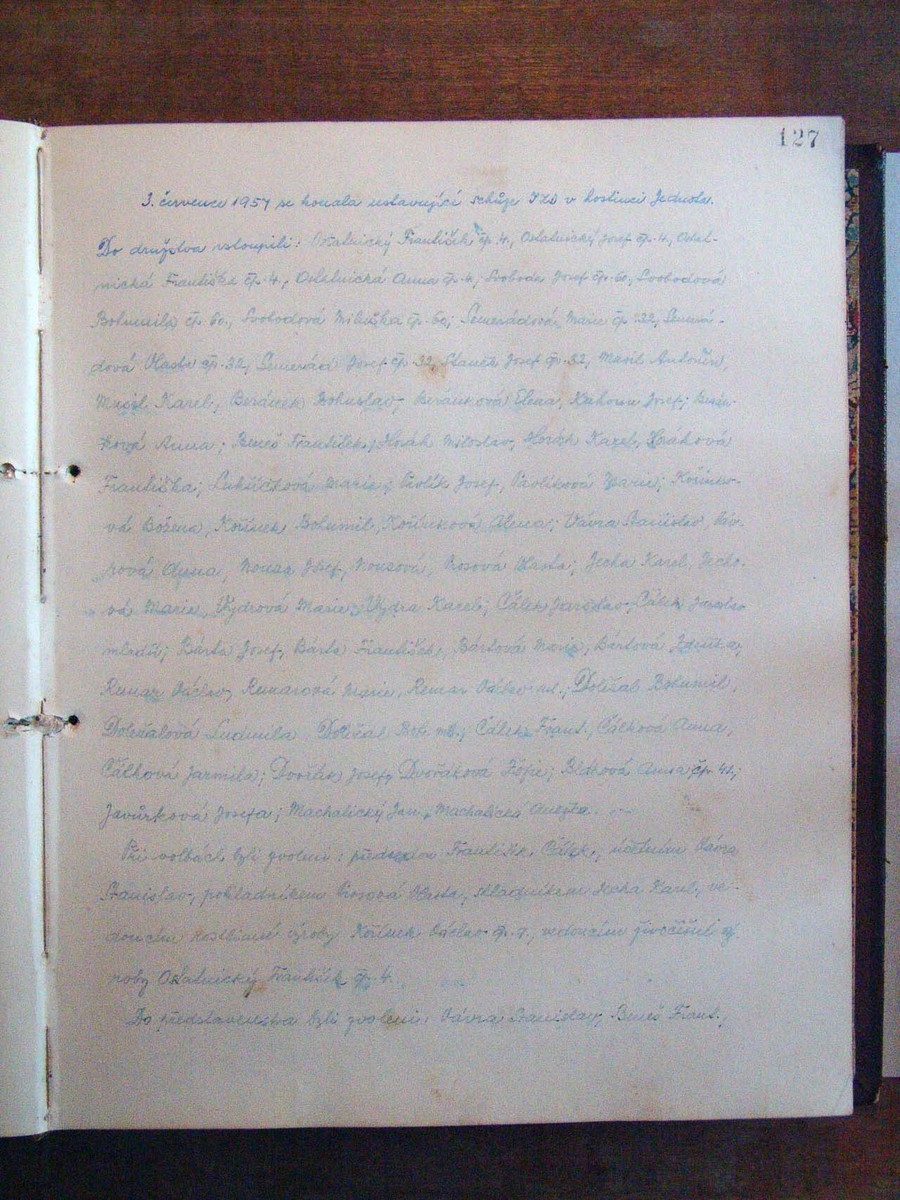 127
3. července 1957 se konala ustavující schůze JZD v hostinci Jednota.
Do družstva vstoupili: Ostatnický František čp. 4, Ostatnický Josef čp. 4, Ostat-
nická Františka čp. 4, Ostatnická Anna čp. 4, Svoboda Josef čp. 60, Svobodová
Bohumila čp. 60, Svobodová Miluška čp. 60; Semerádová Marie čp. 32, Semerá-
dová Vlasta čp. 32, Semerád Josef čp. 32, Staněk Josef čp. 32, Musil Antonín,
Musil Karel, Beránek Bohuslav, Beránková Elena, Josef;
Anna; Beneš František, Horák Miloslav, Horák Karel, Horáková
Františka; Marie; Pavlík Josef, Pavlíková Marie; Kořínko-
vá Božena, Kořínek Bohumil, Kořínková Alena; Vávra Stanislav, Váv-
rová Anna, Josef, Vlasta; Jecha Karel, Jecho-
vá Marie, Vydrová Marie, Vydra Karel; Čálek Jaroslav, Čálek Jaroslav
mladší; Bárta Josef, Bárta František, Bártová Marie, Bártová Zdenka,
Remar Václav, Remarová Marie, Remar Václav ml.; Doležal Bohumil,
Doležalová Ludmila, Doležal Boh. ml.; Čálek Frant., Čálková Anna,
Čálková Jarmila; Dvořák Josef, Dvořáková Žofie; Anna čp. 41;
Javůrková Josefa; Machatický Jan, Machatická
Při volbách byli zvoleni: předsedou František Čálek, účetním Vávra
Stanislav, pokladníkem Vlasta, skladníkem Jecha Karel, ve-
doucím rostlinné výroby Kořínek Václav čp. 9, vedoucím živočišné vý-
roby Ostatnický František čp. 4.
Do představenstva byli zvoleni: Vávra Stanislav, Beneš Frant.,